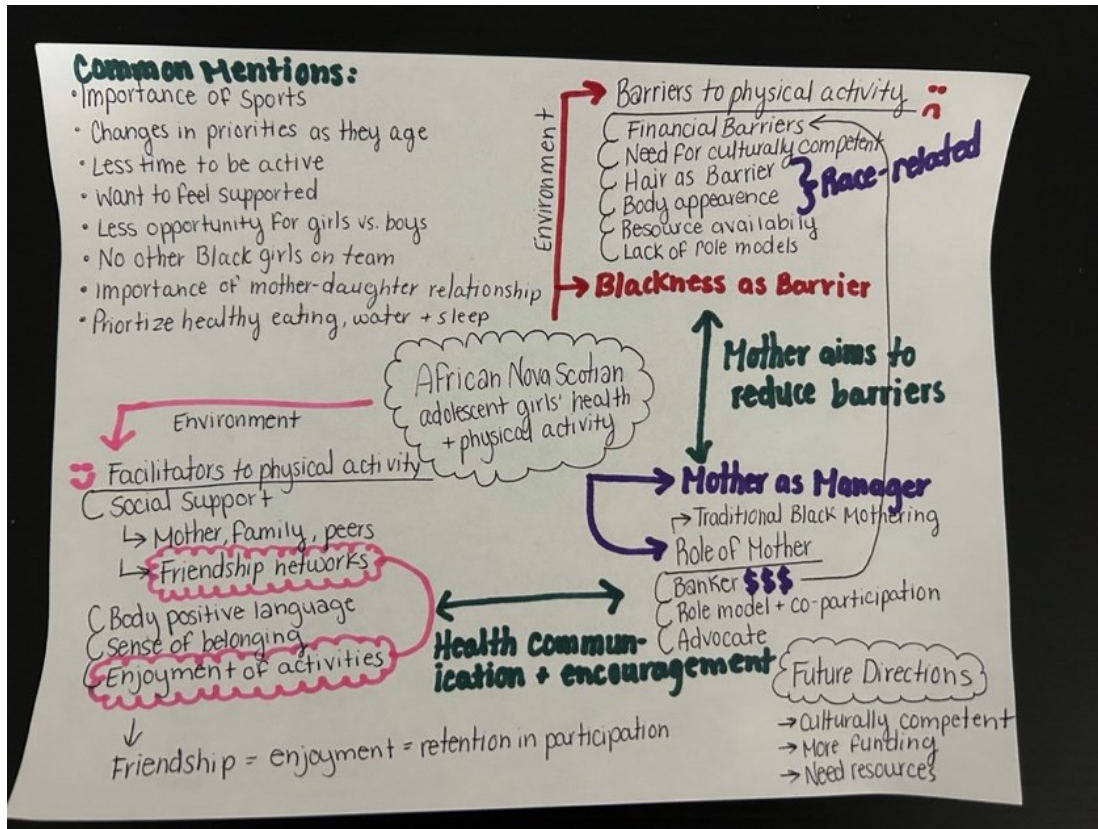 Common Mentions:
• Importance of Sports
• Changes in priorities as they age
• Less time to be active
• Want to feel supported
• Less opportunity for girls vs. boys
• No other Black girls on team
• Importance of mother-daughter relationship
• Prioritize healthy eating, water + sleep
Environment
Barriers to physical activity
Financial Barriers
Need for culturally competent
Hair as Barrier
Body appearence
Race-related
Resource availabily
Lack of role models
Blackness as Barrier
Mother aims to
reduce barriers
African Nova Scotian
adolescent girls' health
+ physical activity
Environment
Facilitators to physical activity
Social Support
↳ Mother, family, peers
↳ Friendship networks
Body positive language
Sense of belonging
Enjoyment of activities
↓
Friendship = enjoyment = retention in participation
Health commun-
ication + encouragement
Mother as Manager
→ Traditional Black Mothering
Role of Mother
Banker $$$
Role model + co-participation
Advocate
Future Directions
→ Culturally competent
→ More funding
→ Need resources